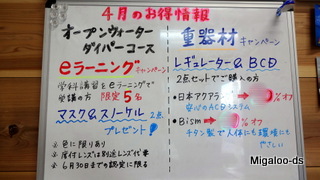 4月のお得情報
オープンウォーター
ダイバーコース
eラーニング キャンペーン
学科講習をeラーニングで
受講の方 限定5名
マスク&スノーケル 2点
プレゼント!
※ 色に限りあり
※ 度付レンズは別途レンズ代要
※ 6月30日までの認定に限る
重器材 キャンペーン
レギュレーター&BCD
2点セットでご購入の方
・日本アクアラング → %オフ
安心のACDシステム
・Bism → %オフ
チタン製で人体にも環境にも
やさしい
Migaloo-ds